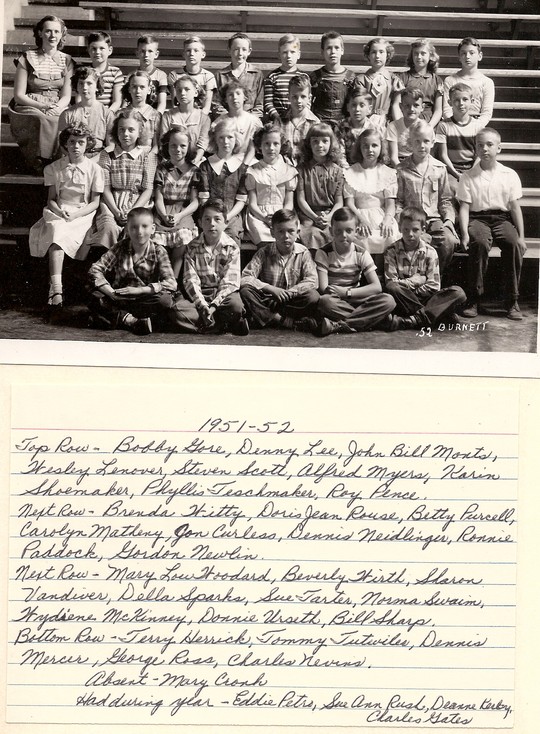 .52 BURNETT
1951-52
Top Row - Bobby Gore, Denny Lee, John Bill Monts,
Wesley Lenover, Steven Scott, Alfred Myers, Karin
Shoemaker, Phyllis Teschmaker, Roy Pence.
Next Row - Brenda Witty, Doris Jean Rouse, Betty Purcell,
Carolyn Matheny, Jon Curless, Dennis Neidlinger, Ronnie
Paddock, Gordon Newlin.
Next Row - Mary Lou Woodard, Beverly Wirth, Sharon
Vandiver, Della Sparks, Sue Tarter, Norma Swaim,
McKinney, Donnie Urseth, Bill Sharp.
Bottom Row - Terry Herrick, Tommy Tutwiler, Dennis
Mercer, George Ross, Charles Nevins.
Absent - Mary Cronk
Had during year - Eddie Petro, Sue Ann Rush, Deanne Kerby,
Charles Gates